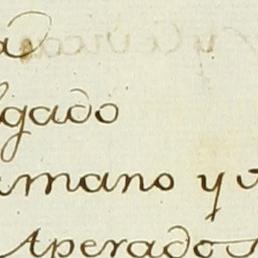 a
lgado
rmano y v
Aperados